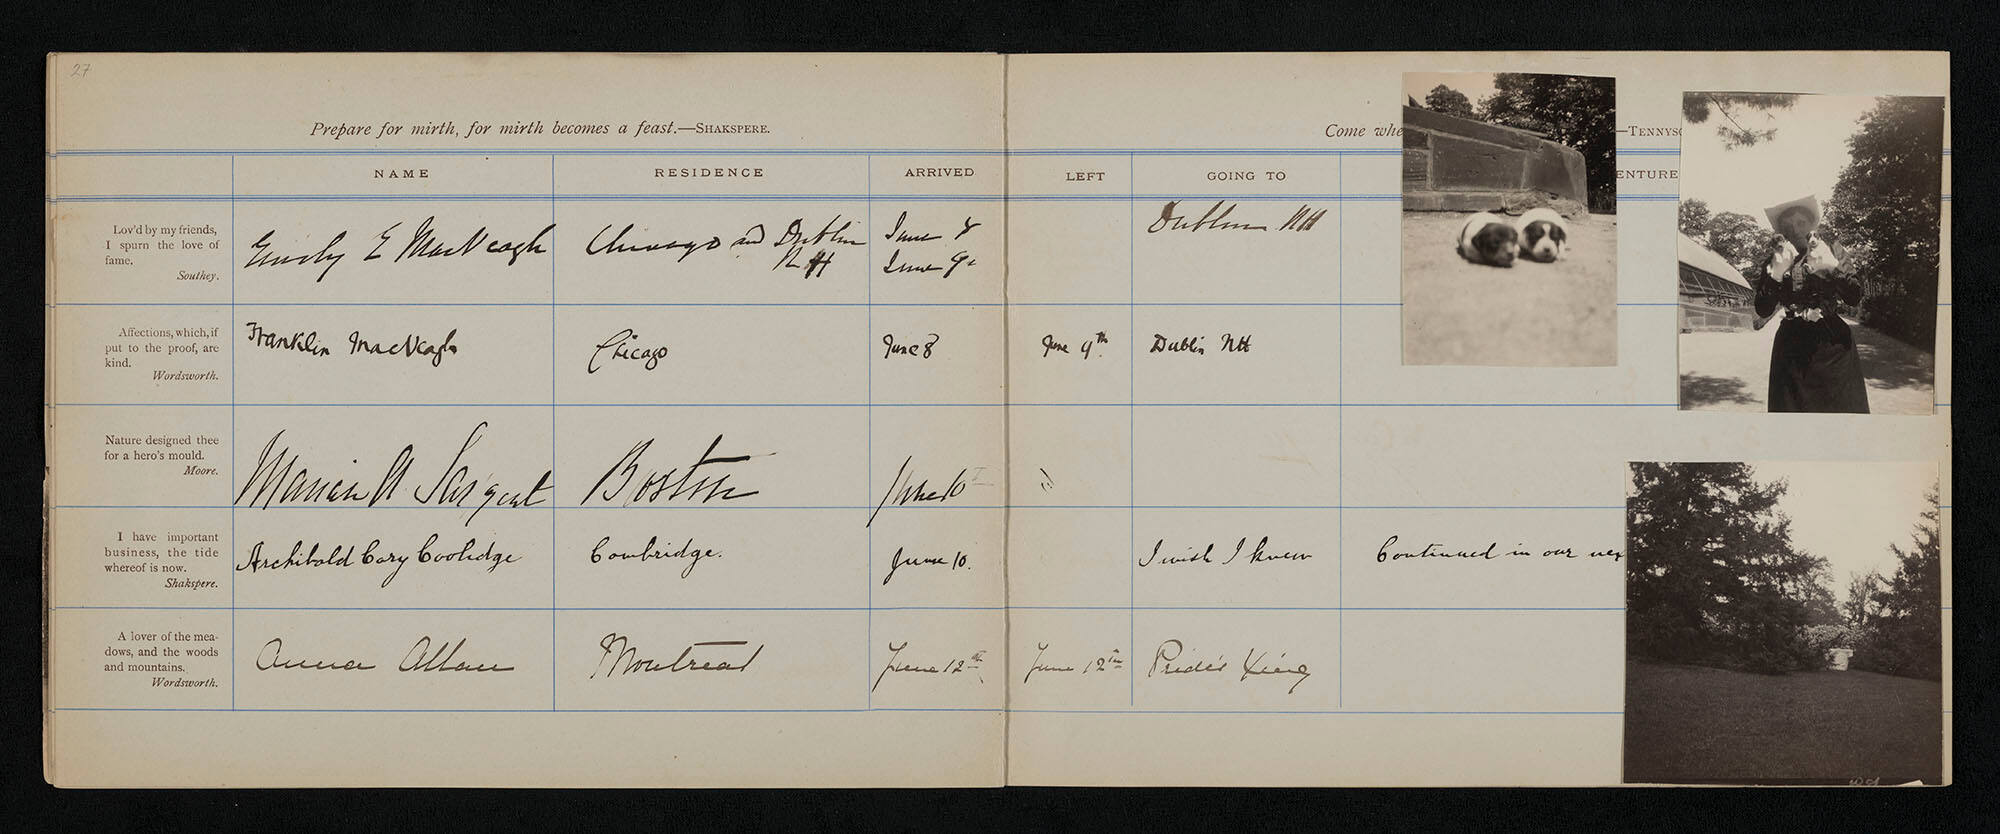 27
Prepare for mirth, for mirth becomes a feast.—SHAKSPERE.
Come whe
—TENNYSO
NAME RESIDENCE ARRIVED LEFT GOING TO ENTURE
Lov'd by my friends,
I spurn the love of
fame.
Southey.
Emily E MacVeagh Chicago and Dublin
NH
June
June 9
Dublin NH
Affections, which, if
put to the proof, are
kind.
Wordsworth.
Franklin MacVeagh Chicago June 8 June 9th Dublin NH
Nature designed thee
for a hero's mould.
Moore.
A Sargent Boston June 10 "
I have important
business, the tide
whereof is now.
Shakspere.
Archibald Cary Coolidge Cambridge. June 10. I wish I knew Continued in our nex
A lover of the mea-
dows, and the woods
and mountains.
Wordsworth.
Anna Allan Montreal June 12th June 12th Pride's Xing